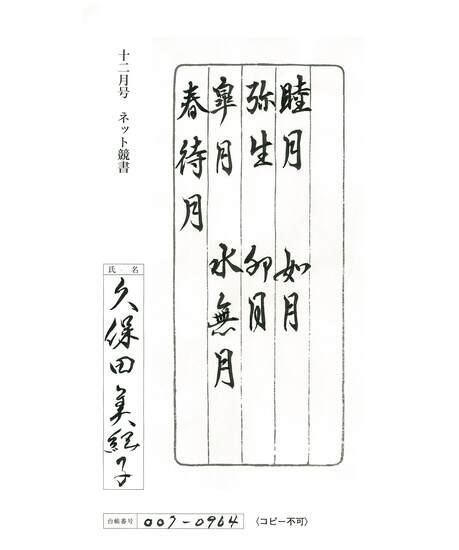 睦月 如月
弥生 卯月
皐月 水無月
春待月
十二月号 ネット競書
氏 名
久保田美紀子
台帳番号 007-0964 〈コピー不可〉